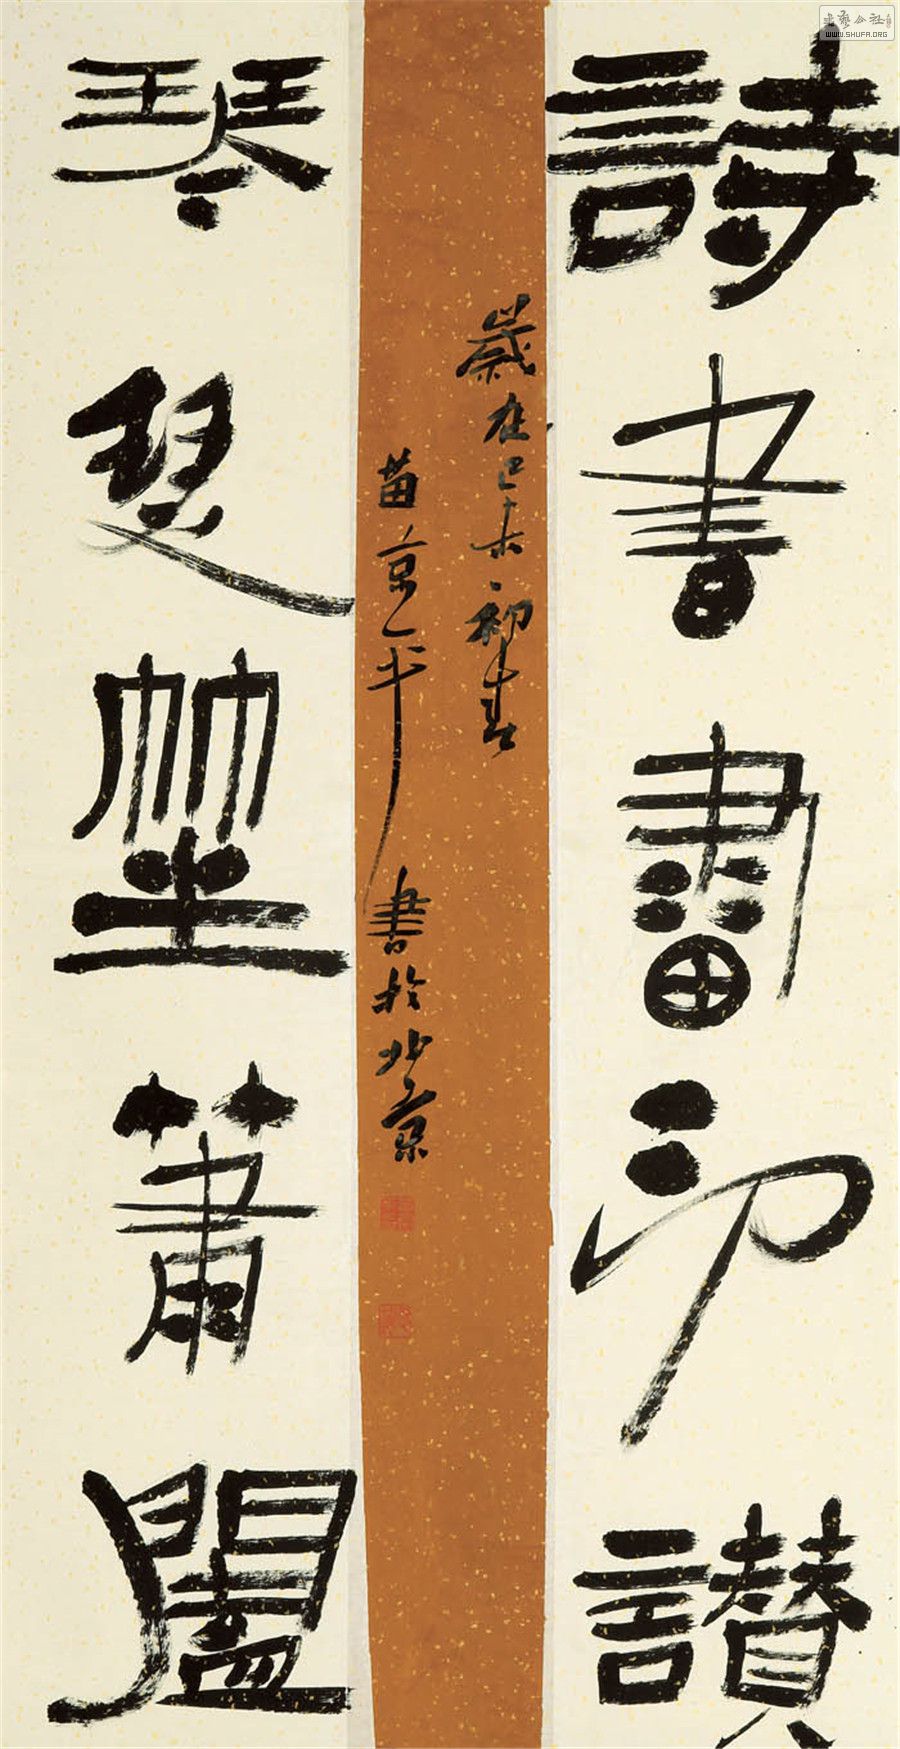 詩書畫印讚
琴瑟笙簫闔
歲在己未初春
苗京平書於北京
書藝公社
WWW.SHUFA.ORG